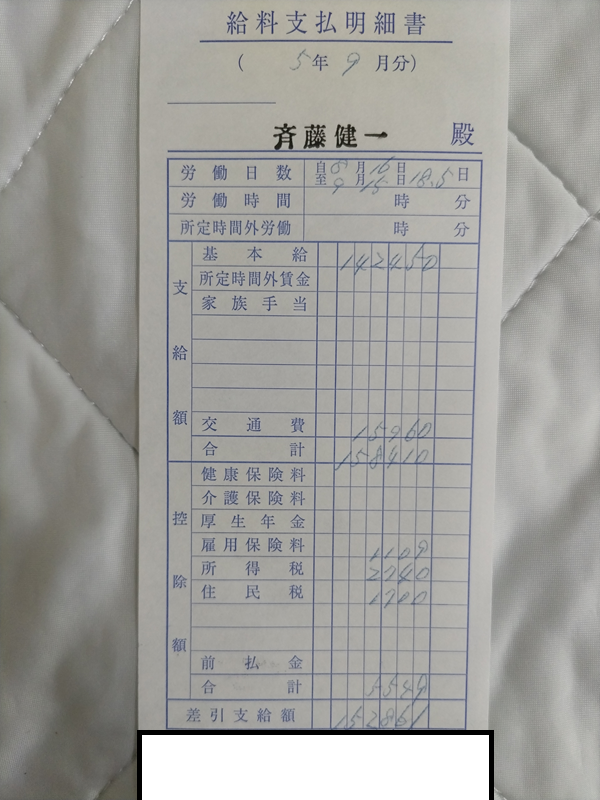 給料支払明細書
( 5年 9 月分)
斉藤健一 殿
労働日数 自8月16日 至9月15日 18.5日
労働時間 時 分
所定時間外労働 時 分
支給額
基本給 142450
所定時間外賃金
家族手当
交通費 15960
合計 158410
控除額
健康保険料
介護保険料
厚生年金
雇用保険料 1109
所得税 2740
住民税 1700
前払金
合計 5549
差引支給額 152861